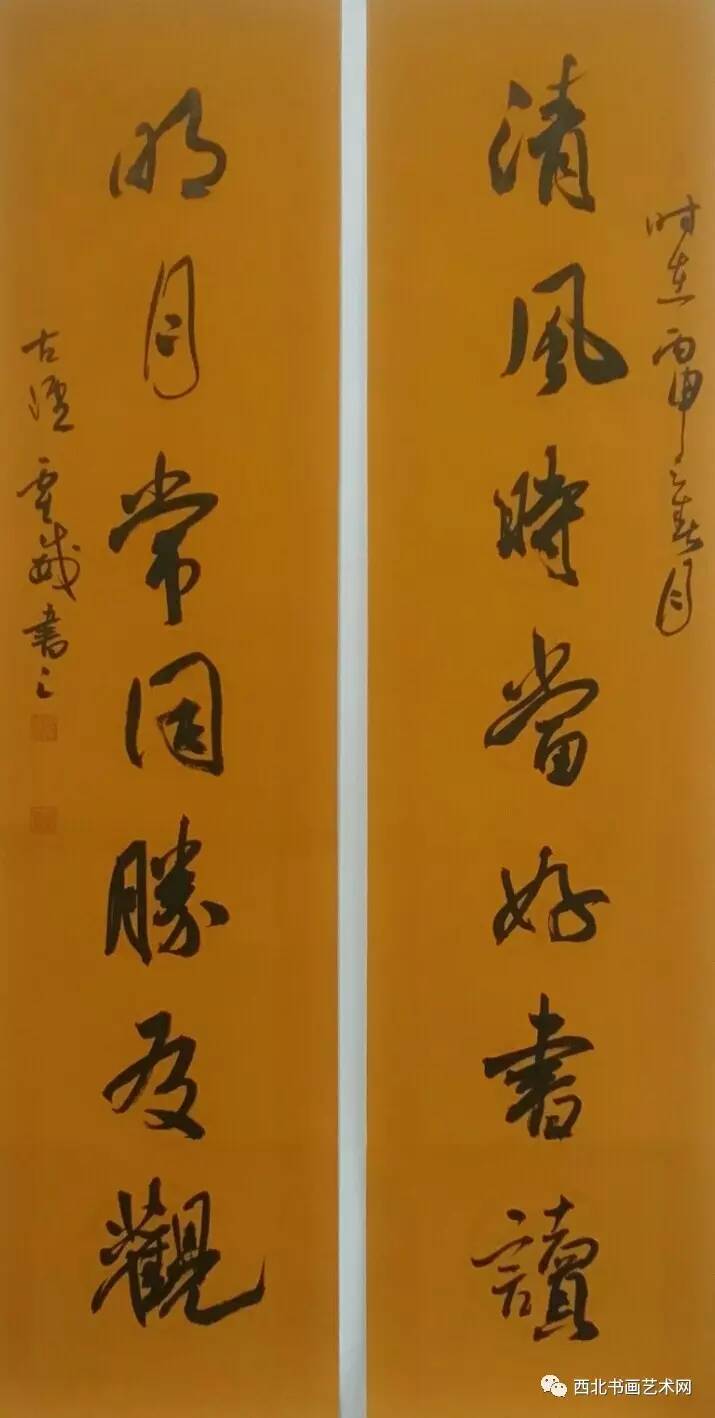 时在丙申之春月
清風時當好書讀
明月常同勝友觀
古 書之
西北书画艺术网